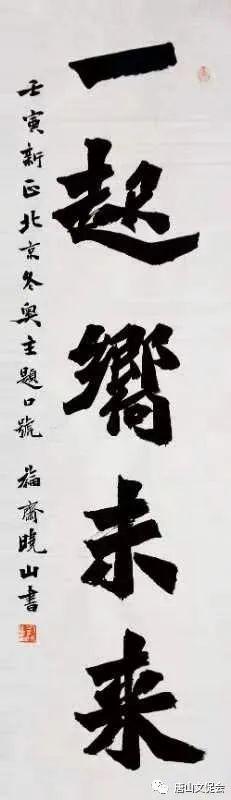 一起嚮未来
壬寅新正北京冬奥主題口號 齋晓山書
唐山文促会